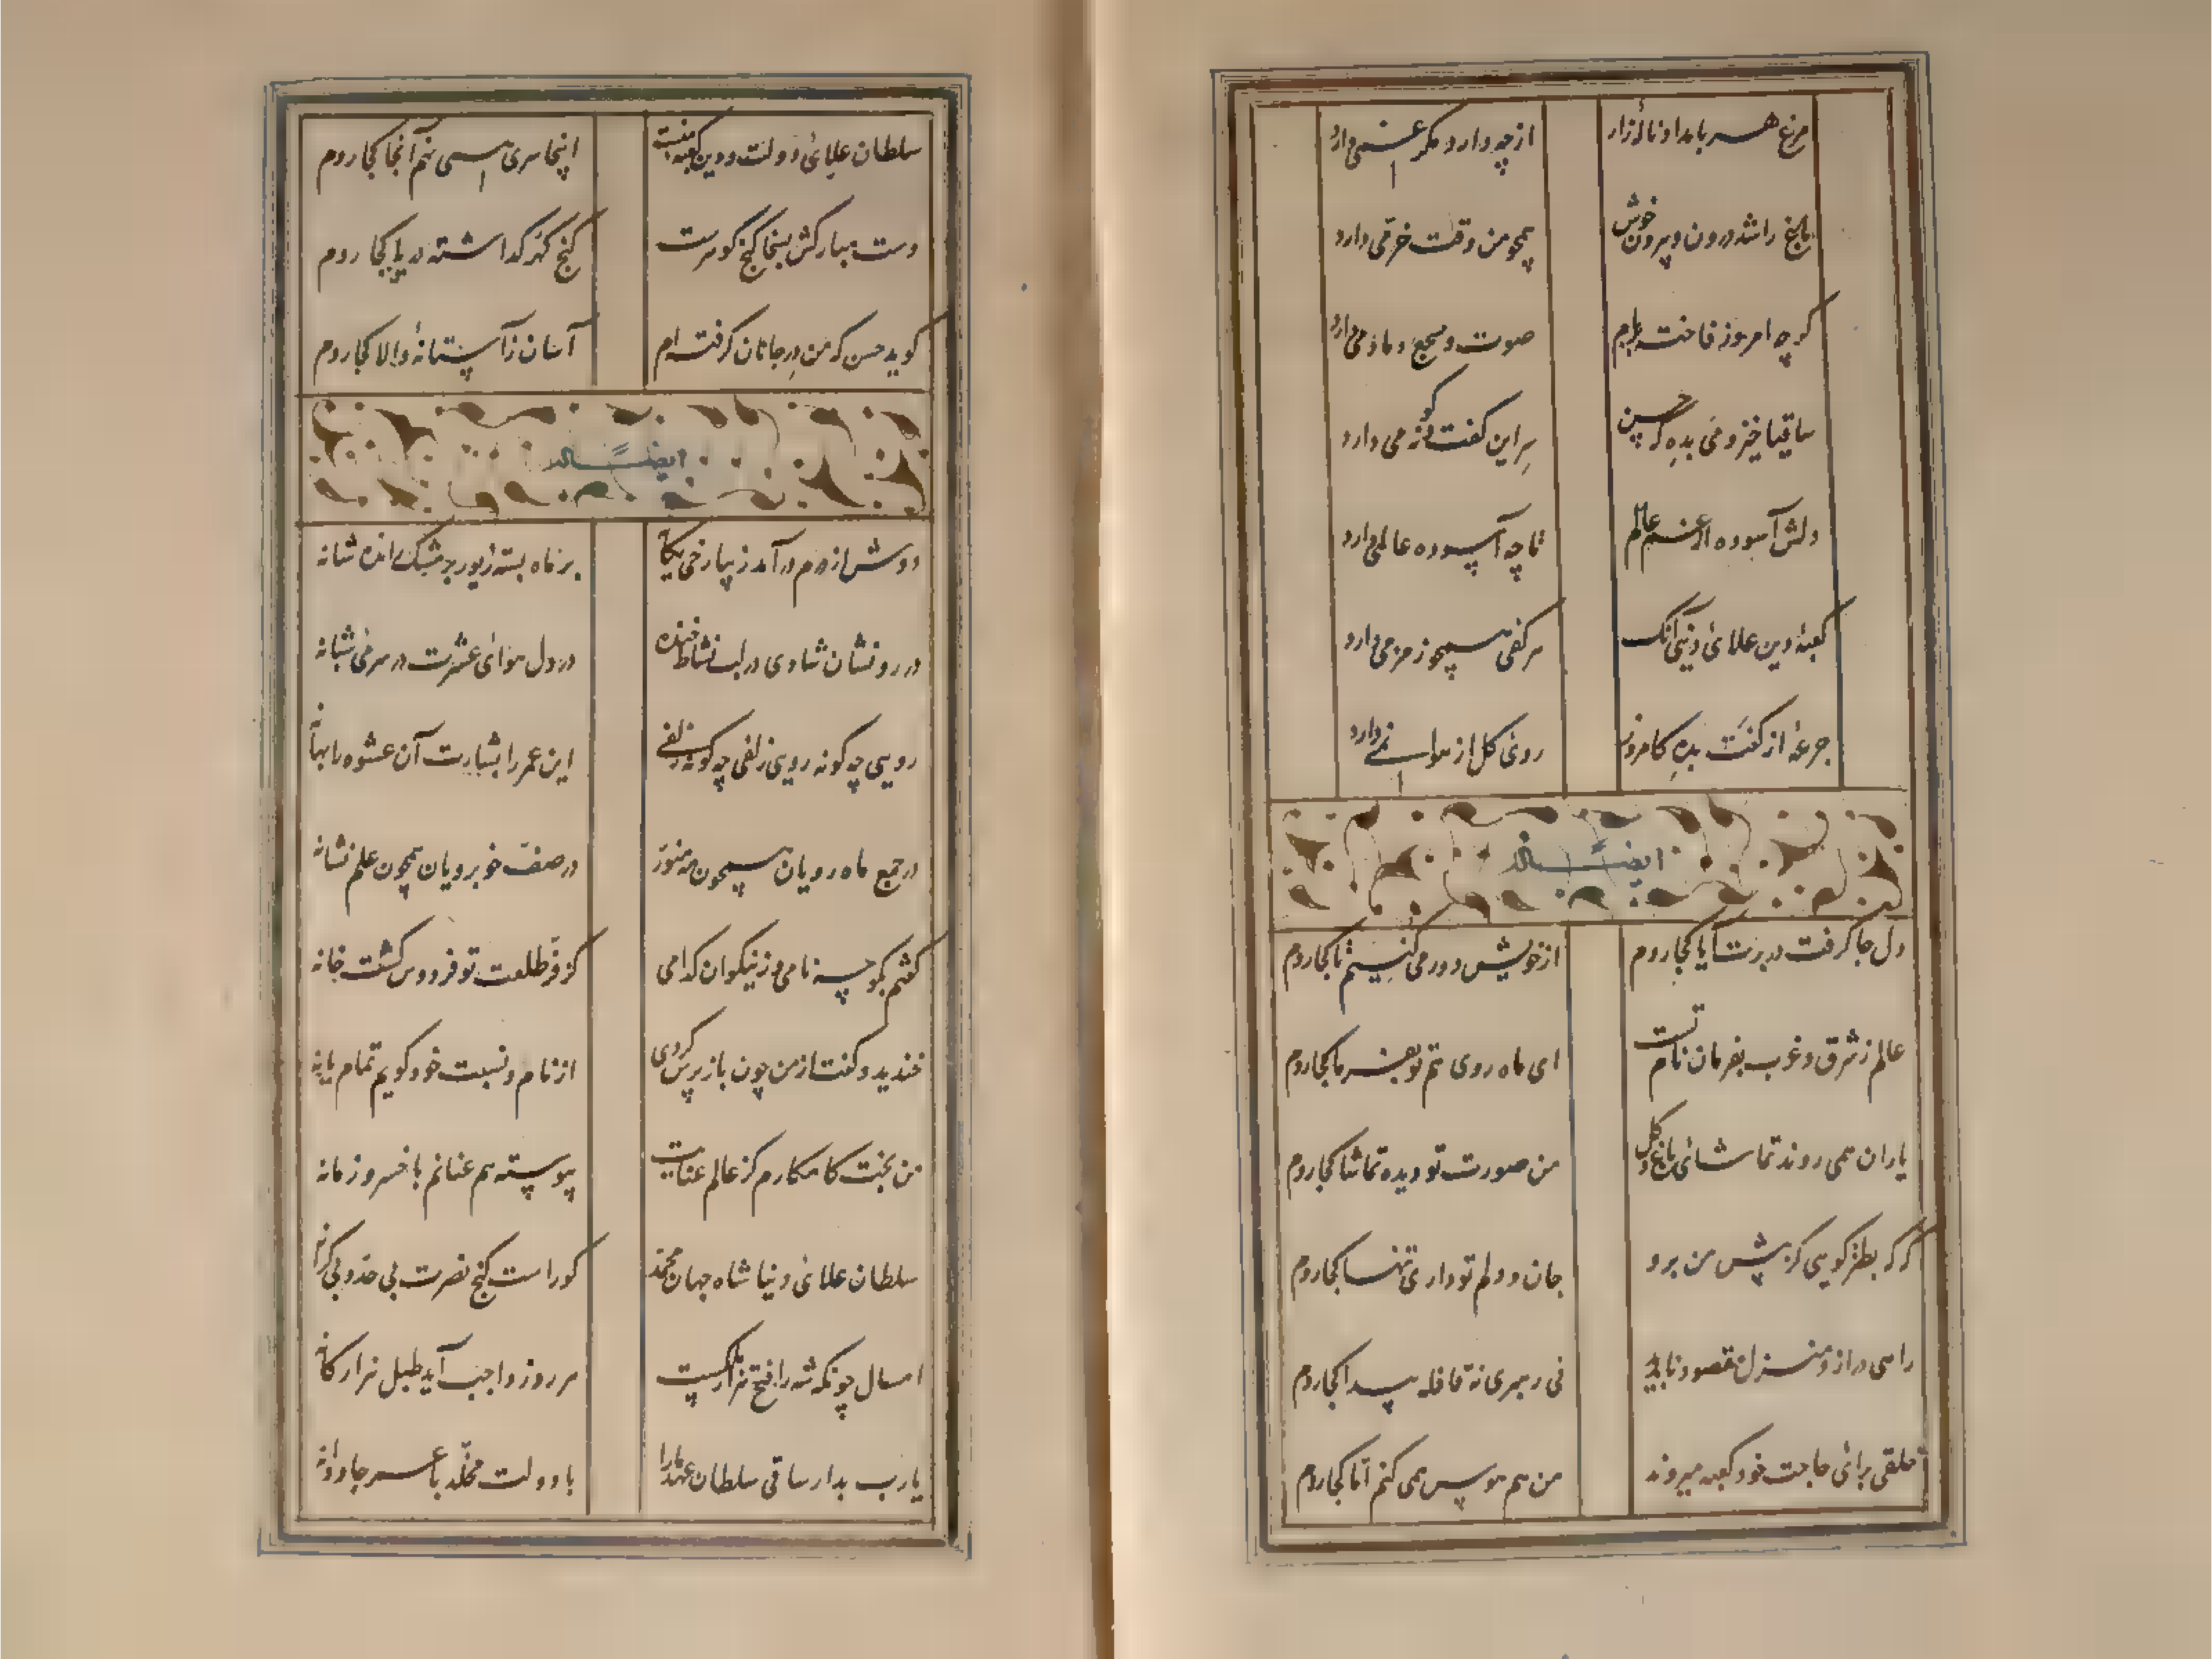 مرغ هر بامداد نالۀ زار
از چه دارد مگر غمی دارد
باغ را شد درون و بیرون خوش
همچو من وقت خرمی دارد
گرچه امروز فاخته
صوت و سجع دمادمی دارد
ساقیا خیز و می بده که حسن
بر این گفت و گو نمی دارد
دلش آسوده از غم عالم
تا چه آسوده عالمی دارد
کعبۀ دین علای دنیی آنک
هر کفی همچو زمزمی دارد
جرعۀ از کفت بده کامروز
روی گل از هوا نمی دارد
ایضاً له
دل جا گرفت در برت آیا کجا روم
از خویش دور می کنیم تا کجا روم
عالم ز شرق و غرب بفرمان نام تست
ای ماه روی هم تو بفرما کجا روم
یاران همی روند تماشای باغ و گل
من صورت تو دیده تماشا کجا روم
گر که بطنز گویی کز پیش من برو
جان و دلم تو داری تنها کجا روم
راهی دراز و منزل مقصود ناپدید
نی رهبری نه قافله پیدا کجا روم
خلقی برای حاجت خود کعبه میروند
من هم هوس همی کنم اما کجا روم
سلطان علای دولت و دین کعبه منست
اینجا سری همی نهم آنجا کجا روم
دست مبارکش بسخا گنج گوهرست
گنج گهر گذاشته دریا کجا روم
گوید حسن که من در جانان گرفته ام
آسان ز آستانۀ والا کجا روم
ایضاً له
دوش از درم در آمد زیبا رخی یگانه
بر ماه بسته زیور بر مشک رانده شانه
در رو نشان شادی در لب نشاط خنده
در دل هوای عشرت در سر می شبانه
رویی چه گونه رویی زلفی چه گونه زلفی
این عمر را بشارت آن عشوه را بهانه
در جمع ماه رویان همچون مه منور
در صف خوبرویان همچون علم نشانه
گفتم بگو چه نامی وز نیکوان کدامی
کز فر طلعت تو فردوس گشت خانه
خندید و گفت از من چون باز پرس کردی
از نام و نسبت خود گویم تمام یا نه
من بخت کامکارم کز عالم عنایت
پیوسته هم عنانم با خسرو زمانه
سلطان علای دنیا شاه جهان محمد
کوراست گنج نصرت بی حد و بی کرانه
امسال چونکه شه را فتح هزار ملکست
هر روز واجب آید طبل هزار گانه
یارب بدار ساقی سلطان عهد ما را
با دولت مخلد با عمر جاودانه